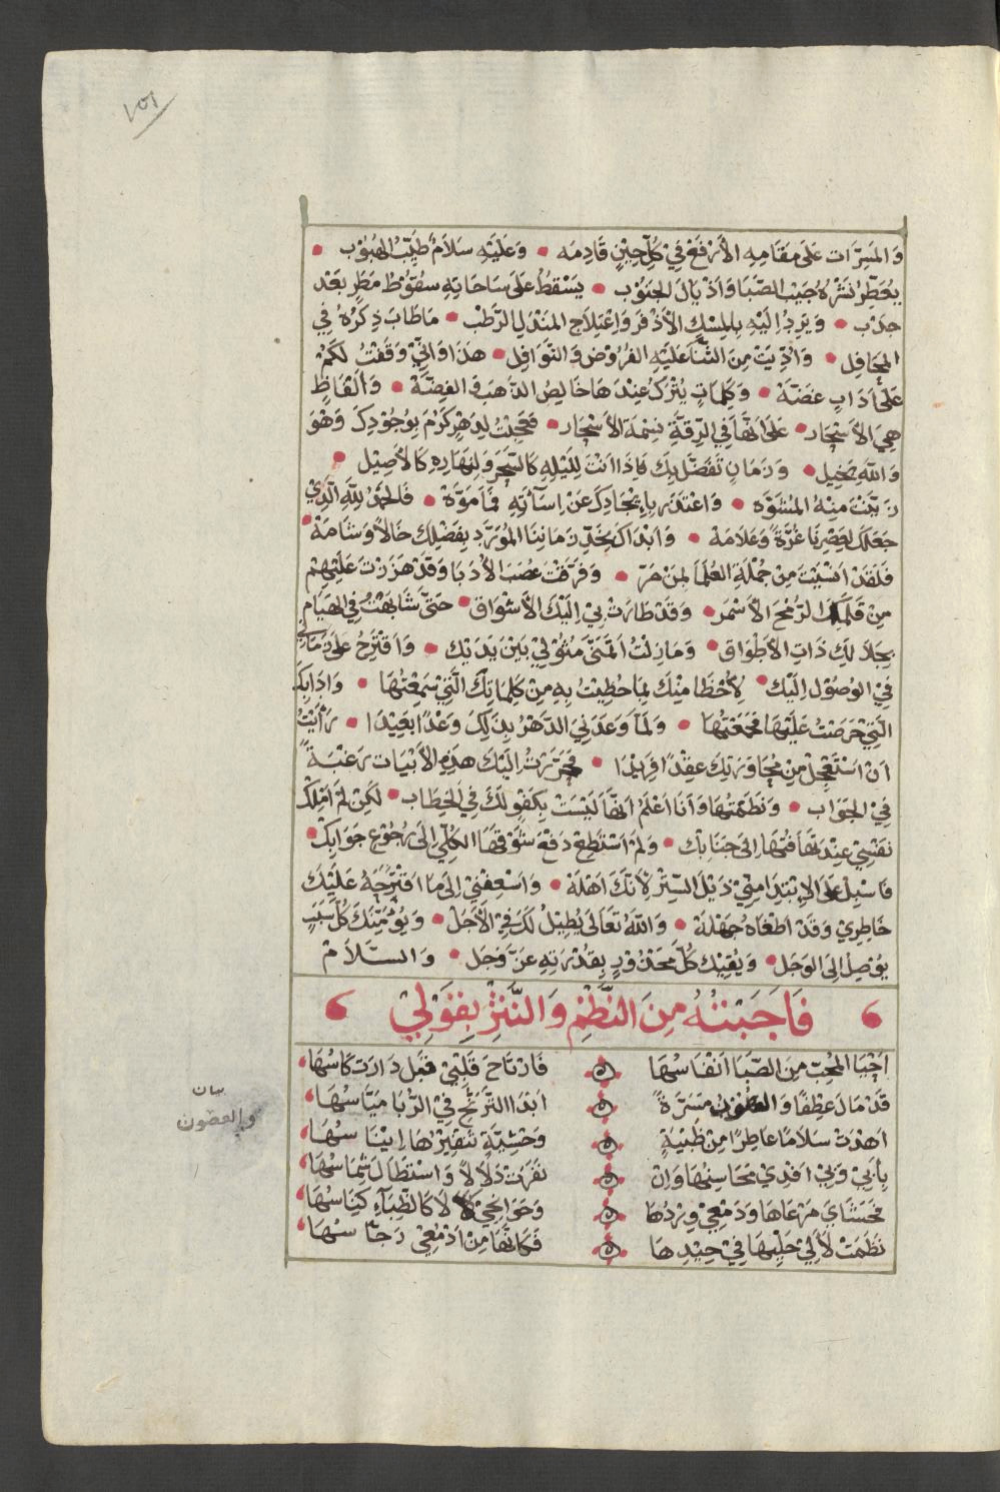 ١٥١
وَالمَسِرَّات عَلَى مَقَامِهِ الأَرْفَعْ فِيْ كُلِّ حِيْنٍ قَادِمَه • وَعَلَيْهِ سَلَامٌ طَيِّبُ الهُبُوْب •
يُعَطِّرُ نَشْرُهُ جَيْبَ الصَّبَا وَاَذْيَالَ الجَنُوْب • يَسْقُطُ عَلَى سَاحَاتِهِ سُقُوْطَ مَطَرٍ بَعْدَ
جَدْب • وَيَرِدُ اِلَيْهِ بِالمِسْكِ الأَذْفَر وَاعْتِلَاجِ المَنْدَلِ الرَّطْب • مَا طَابَ ذِكْرُهُ فِي
المَحَافِل • وَاُدِّيَتْ مِنَ الثَّنَا عَلَيْهِ الفُرُوْضُ وَالنَّوَافِل • هَذَا وَاِنِّيْ وَقَفْتُ لَكُمْ
عَلَى اَدَابٍ غَضَّة • وَكَلِمَاتٍ يُتْرَكُ عِنْدَهَا خَالِصُ الذَّهَبِ وَالفِضَّة • وَاَلْفَاظٍ
هِيَ الأَسْحَار • عَلَى اَنَّهَا فِي الرِّقَّةِ نِسْمَةُ الأَسْحَار • فَعَجِبْتُ لِدَهْرٍ كَرُمَ بِوُجُوْدِكَ وَهْوَ
وَاللهِ بَخِيْل • وَزَمَانٍ تَفَضَّلَ بِكَ فَاِذَا اَنْتَ لِلَيْلِهِ كَالسَّحَرِ وَلِنَهَارِهِ كَالأَصِيْل •
زَيَّنْتَ مِنْهُ المُشَوَّه • وَاعْتَذَرَ بِاِيْجَادِكَ عَنْ اِسَآئَتِهِ فَمَا مَوَّه • فَالحَمْدُ لِلّهِ الَّذِيْ
جَعَلَكَ لِعَصْرِنَا غُرَّةً وَعَلَامَة • وَاَبْدَاكَ بِخَدِّ زَمَانِنَا المُوَرَّدِ بِفَضْلِكَ خَالاً وَشَامَة •
فَلَقَدْ اَنْسَيْتَ مِنْ جُمْلَةِ العُلَمَا لِمَنْ مَرّ • وَفَرَّقْتَ عُصَبَ الأُدَبَا وَقَدْ هَزَزْتَ عَلَيْهِمْ
مِنْ قَلَمِكَ الرُّمْحَ الأَسْمَر • وَقَدْ طَارَتْ بِيْ اِلَيْكَ الأَشْوَاق • حَتَّى شَابَهْتُ فِي الهَيَامِ
بِجَلَالِكَ ذَاتَ الأَطْوَاق • وَمَا زِلْتُ اَتَمَنَّى مُثُوْلِيْ بَيْنَ يَدَيْك • وَاَقْتَرِحُ عَلَى زَمَانِي
فِيْ الوُصُوْلِ اِلَيْك • لِأَحْظَا مِنْكَ بِمَا حَظِيْتُ بِهِ مِنْ كَلِمَاتِكَ الَّتِيْ سَمِعْتُهَا • وَادَابِكَ
الَّتِيْ حَرَصْتُ عَلَيْهَا فَجَمَعْتُهَا • وَلَمَّا وَعَدَنِيَ الدَّهْرُ بِذَلِكَ وَعْدًا بَعِيْدًا • رَأَيْتُ
اَنْ اَسْتَعْجِلَ مِنْ مُحَاوَرَتِكَ عِقْدًا فَرِيْدًا • فَحَرَّرْتُ اِلَيْكَ هَذِهِ الأَبْيَاتِ رَغْبَةً
فِيْ الجَوَاب • وَنَظَمْتُهَا وَاَنَا اَعْلَمُ اَنَّهَا لَيْسَتْ بِكَفْوٍ لَكَ فِي الخِطَاب • لَكِنْ لَمْ اَمْلِكْ
نَفْسِيْ عِنْدَ تَهَافُتِهَا اِلَى جَنَابِك • وَلَمْ اَسْتَطِعْ دَفْعَ شَوْقِهَا الكُلِّيِّ اِلَى رُجُوْعِ جَوَابِك •
فَاَسْبِلْ عَلَى الاِبْتِدَا مِنِّيْ ذَيْلَ السِّتْرِ لِأَنَّكَ اَهْلَه • وَاَسْعِفْنِيْ اِلَى مَا اقْتَرَحَهُ عَلَيْكَ
خَاطِرِيْ وَقَدْ اَطْغَاهُ جَهْلَهْ • وَاللهُ تَعَالَى يُطِيْلُ لَكَ فِي الأَجَلْ • وَيُؤْمِنُكَ كُلَّ سَبَبٍ
يُوْصِلُ اِلَى الوَجَل • وَيُقِيْكَ كُلَّ مَحْذُوْرٍ بِقُدْرَتِهِ عَزَّ وَجَل • وَالسَّلَامْ
فَاَجَبْتُهُ مِنَ النَّظْمِ وَالنَّثْرِ بِقَوْلِيْ
اَحْيَا المُحِبَّ مِنَ الصَّبَا اَنْفَاسُهَا فَارْتَاحَ قَلْبِيْ قَبْلَ دَارَتْ كَاسُهَا
قَدْ مَالَ عِطْفًا وَالغُصُوْن مَسَرَّةً اَبَدَا التَّرَنُّحَ فِيْ الرُّبَا مَيَّاسُهَا
بيان
والغصون
اَهْدَتْ سَلَامًا عَاطِرًا مِنْ ظَبْيَةٍ وَحْشِيَّةٍ تَنْفِيْرُهَا اِيْنَاسُهَا
بِأَبِيْ وَبِيْ اَفْدِيْ مَحَاسِنَهَا وَاِنْ نَفَرَتْ دَلَالاً وَاسْتَطَالَ شِمَاسُهَا
فَحَشَايَ مَرْعَاهَا وَدَمْعِيْ وِرْدُهَا وَجَوَانِحِيْ لَا كَالظِّبَآءِ كِنَاسُهَا
نَظَمَتْ لَأَلِيْ حَلْيِهَا فِيْ جِيْدِهَا فَكَاَنَّهَا مِنْ اَدْمُعِيْ رَجَّاسُهَا